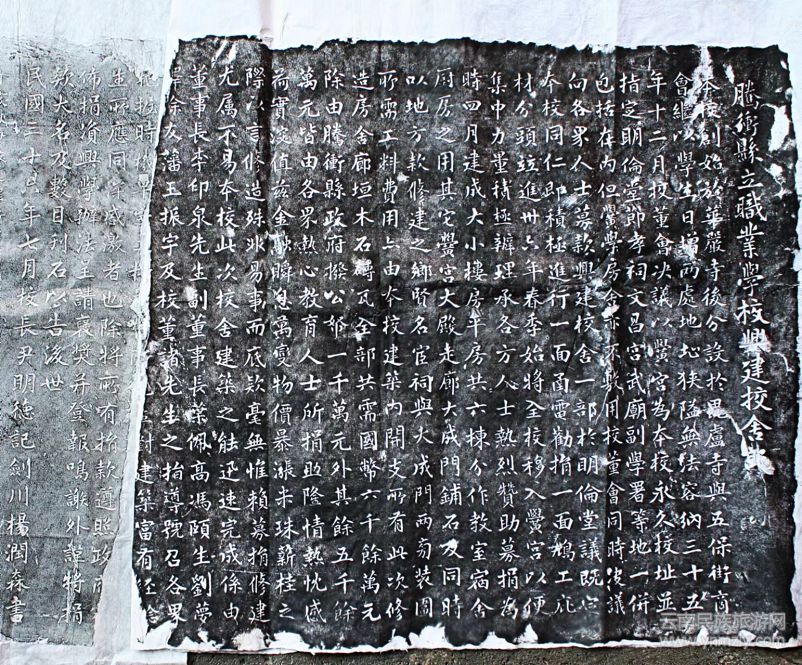 騰衝縣立職業學校興建校舍
本校創始於華嚴寺後分設於毘盧寺與五保街商
會繼以學生日增兩處地址狹隘無法容納三十五
年十二月校董會决議以黌宮為本校永久校址並
指定明倫堂節孝祠文昌宮武廟副學署等地一併
包括在內但黌學房舍亦不敷用校董會同時復議
向各界人士募款興建校舍一部於明倫堂議既定
本校同仁即積極進行一面函電勸捐一面鳩工庀
材分頭竝進卅六年春季始將全校移入黌宮以便
集中力量積極辦理承各方人士熱烈贊助募捐為
時四月建成大小樓房平房共六棟分作教室宿舍
厨房之用其它黌宮大殿走廊大成門鋪石及同時
以地方款修建之鄉賢名宦祠與大成門兩旁裝圍
所需工料費用亦由本校建築內開支所有此次修
造房舍廊垣木石磚瓦全部共需國幣六千餘萬元
除由騰衝縣政府撥公帑一千萬元外其餘五千餘
萬元皆由各界熱心教育人士所捐助隆情熱忱感
荷實深值茲金融瞬息萬變物價暴漲米珠薪桂之
際以言修造殊非易事而底款毫無惟賴募捐修建
尤属不易本校此次校舍建築之能迅速完成係由
董事長李印泉先生副董事長葉佩高馮碩生劉夢
澤徐友藩王振宇及校董諸先生之指導號召各界
對建築富有經驗
生所應同深感激者也除將所有捐款遵照政府
佈捐資興學辦法呈請褒奬并登報鳴謝外謹將捐
款大名及數目刊石以告後世
民國三十六年七月校長尹明德記劍川楊潤森書
云南民族旅游网